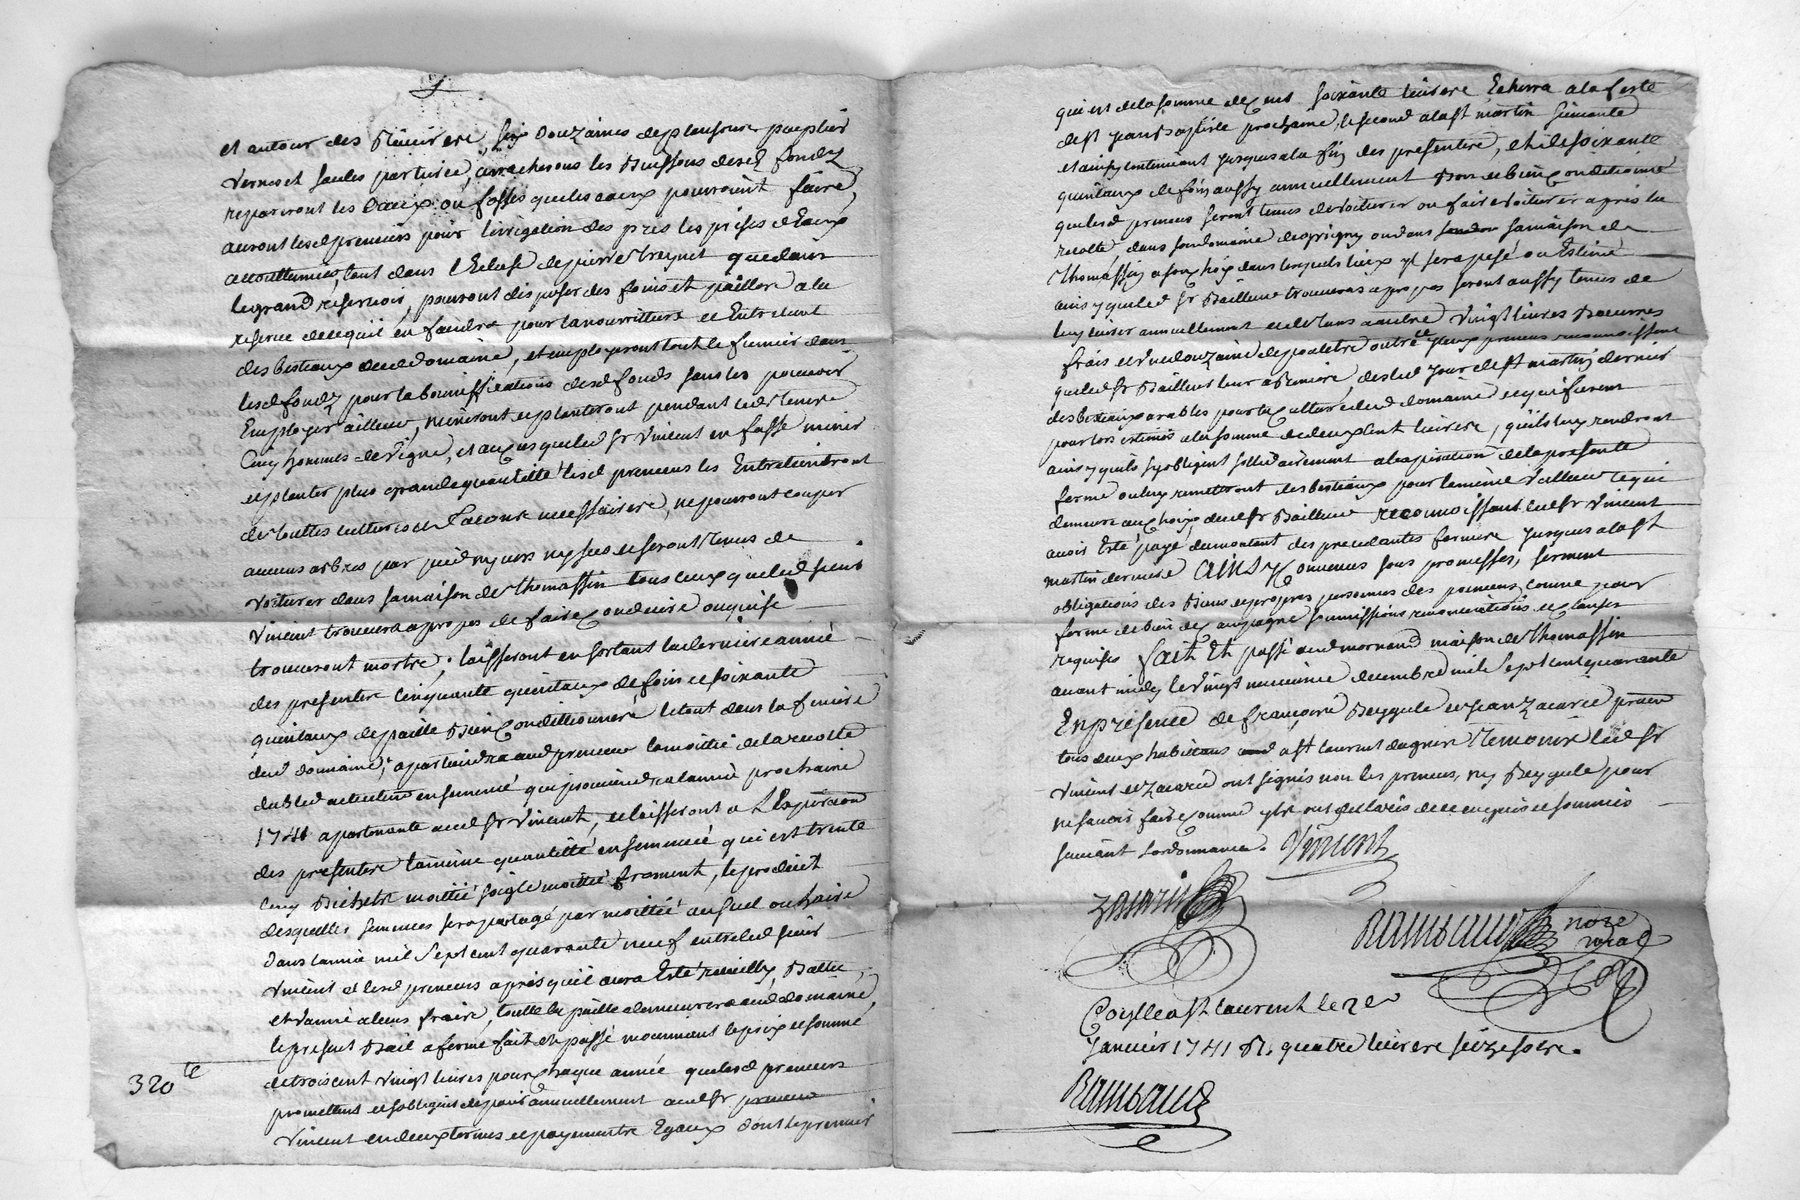 et autour des Rivieres, six douzaines de plansons peuplier
vernes et saules par tiers, arracheront les Buissons desd fonds
repareront les Eaux ou fosses que les eaux pourroient faire,
auront lesd preneurs pour l'irrigation des prés les prises d'Eaux
accoutumées, tant dans l'Ecluse de pierre treynet que dans
le grand reservoir, pourront disposer des foins et pailles a la
reserve de ce qu'il en faudra pour la nourriture et Entretient
des bestiaux dud domaine, et employeront tout le fumier dans
lesd fonds pour la bonniffications desd fonds sans les pouvoir
Employer ailleurs, mineront et planteront pendant led tems
Cinq hommes de vigne, et au cas que led Sr Vincent en fasse miner
et planter plus grande quantitté lesd preneurs les Entretiendront
de touttes cultures et facons necessaires, ne pourront couper
aucuns arbres par pied ny vers ny secs et seront tenus de
voiturer dans sa maison de Thomassin tous ceux que led sieur
Vincent trouvera a propos de faire conduire ou qui se
trouveront mortes; laisseront en sortant la derniere année
des presentes Cinquante quintaux de foin et soixante
quintaux de paille Bien Conditionnés le tout dans la feniere
dud domaine, apartiendra aud preneurs la moitié de la recolte
du bled actuellement ensemencé qui se prendra l'année prochaine
1741 apartenante aud Sr Vincent, et laisseront a l'Expiration
des presentes la même quantitté ensemencé qui est trente
Cinq Bichets moitié soigle moitié froment, le produit
desquelles semences sera partagé par moitié au suel ou haire
dans l'année mil sept cent quarante neuf entre led sieur
Vincent et lesd preneurs après qu'il aura Eté cueilly, Battu
et vanné a leurs fraix, toutte la paille demeurera aud domaine,
le present Bail a ferme fait et passé moyennant le prix et somme
320 te
de trois cent vingt livres pour chaque année que lesd preneurs
promettent et s'obligent de paier annuellement aud Sr preneur
Vincent en deux termes et payements Egaux dont le premier
qui est de la somme de Cent soixante livres Echerra a la feste
de St Jean Baptiste prochaine, le second a la St martin suivante
et ainsy continuant jusques a la fin des presentes, et de soixante
quintaux de foin aussy annuellement Bon et bien conditionné
que lesd preneurs seront tenus de voiturer ou faire voiturer après la
recolte dans son domaine de grigny ou dans sa maison de
Thomassin a son choix dans lesquels lieux il sera pesé ou Estimé
ainsy que led Sr Bailleur trouvera a propos seront aussy tenus de
luy livrer annuellement vingt livres Beurres
frais et une douzaine de poulets outre ce lesd preneurs reconnoissent
que led Sr Bailleur leur a Remis des led jour de St martin dernier
des bestiaux arables pour la culture dud domaine et qui furent
pour lors estimés a la somme de deux cent livres, qu'ils luy rendront
ainsy qu'ils s'y obligent sollidairement a l'expiration de la presente
ferme ou luy remettront des bestiaux pour la même valleur ce qui
demeure au choix dud Sr Bailleur reconnoissant led Sr Vincent
avoir Eté payé du montant des precedantes fermes jusques a la St
martin derniere Ainsy Convenus sous promesses, serment
obligations des Biens et propres personnes des preneurs comme pour
ferme de bien de campagne soumissions renonciations et clauses
requises fait Et passé aud mornand maison de Thomassin
avant midy le vingt neuvieme decembre mil sept cent quarante
En présence de françois Beygule et Jean Zacarie
tous deux habitans a St Laurent dagnin temoins led Sr
Vincent et Zacarie ont signés non les preneurs, ny Beygule pour
ne scavoir faire comme ils ont declarés de ce enquis et sommés
suivant l'ordonnance. Vincent
Zacarie
Rambaud nore
roial
Contrôllé a St Laurent le 2e
Janvier 1741 R. quatre livres seize sols.
Rambaud